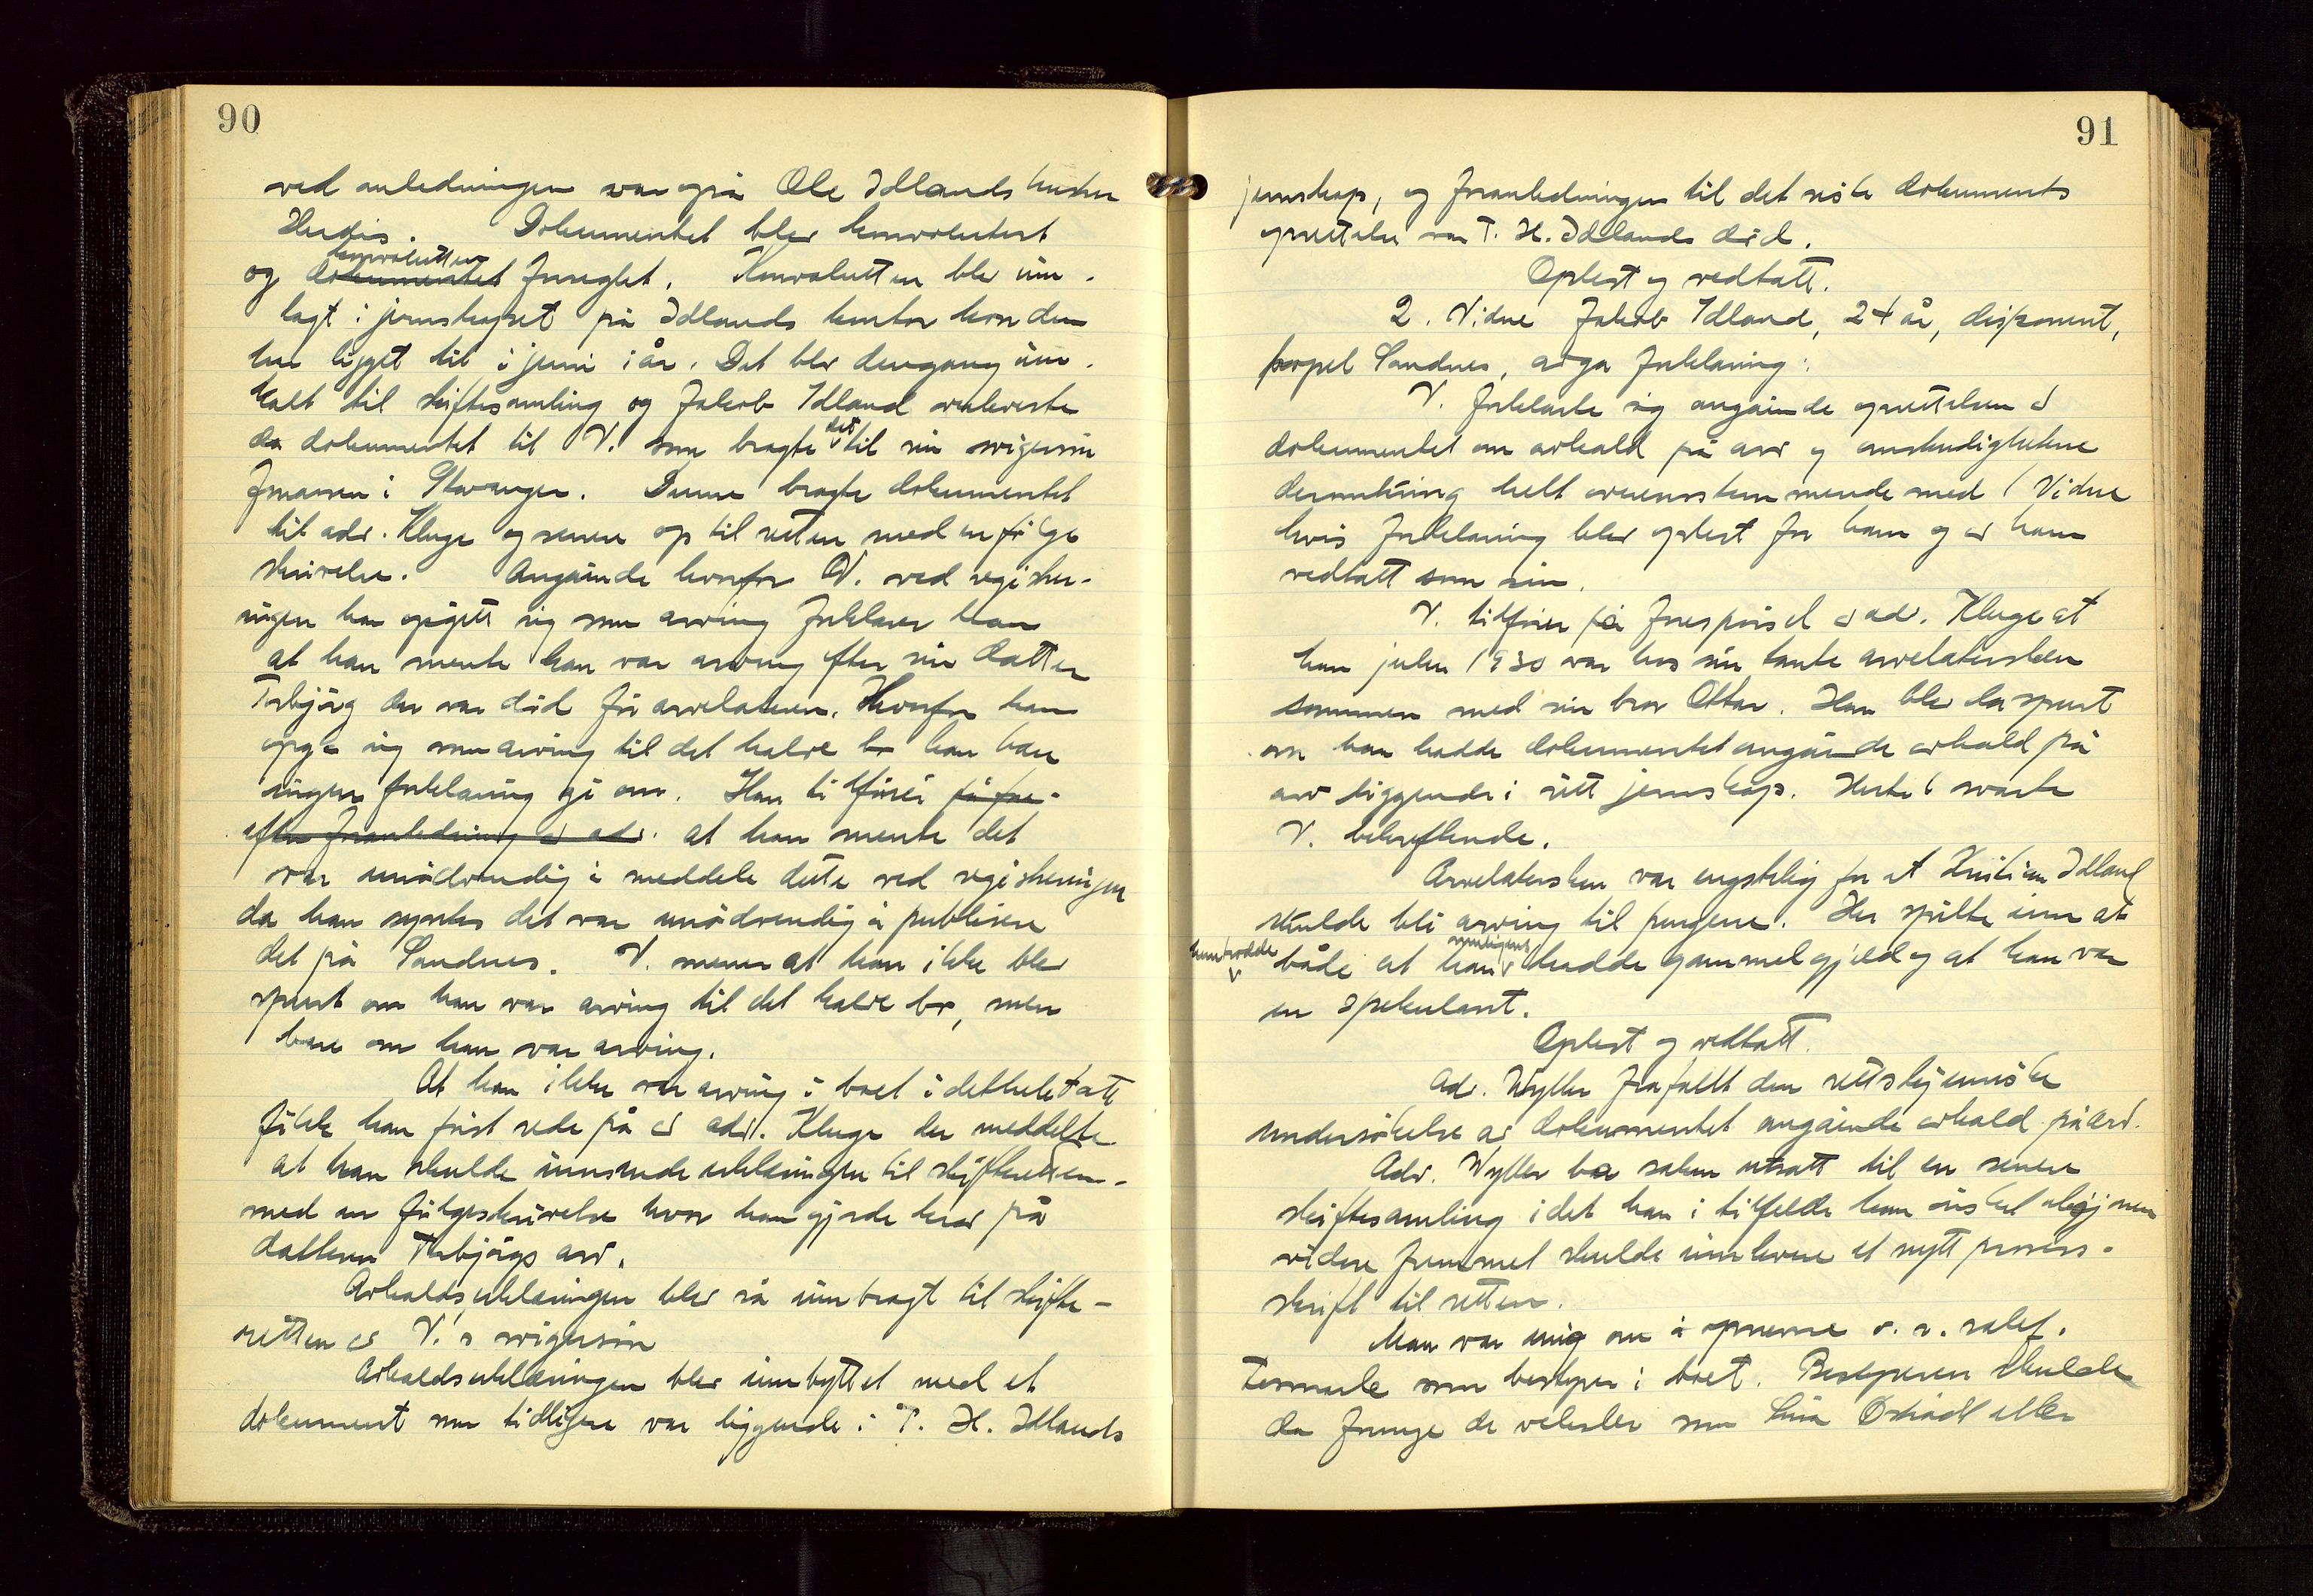 90
ved anledningen var også Ole Idlands hustru
Herdis. Dokumentet blev konvoluttert
konvolutten
og dokumentet forseglet. Konvolutten ble inn-
lagt i jernskapet på Idlands kontor hvor den
har ligget til i juni i år. Det blev dengang inn-
kalt til skiftesamling og Jakob Idland overleverte
da dokumentet til V. som bragte det til sin svigersønn
i Stavanger. Denne bragte dokumentet
til adv. Kluge og senere op til retten med en følge
skrivelse. Angående hvorfor V. ved registre-
ringen har opgitt sig som arving forklarer han
at han mente han var arving efter sin datter
Torbjørg der var død før arvelateren. Hvorfor han
opga sig som arving til det halve bo kan han
ingen forklaring gi om. Han tilføier på fore-
efter foranledning av adv. at han mente det
var unødvendig å meddele dette ved registreringen
da han syntes det var unødvendig å publisere
det på Sandnes. V. mener at han ikke blev
spurt om han var arving til det halve bo, men
bare om han var arving.
At han ikke var arving i boet i det hele tatt
fikk han først rede på av adv. Kluge der meddelte
at han skulde innsende erklæringen til skifteretten
med en følgeskrivelse hvor han gjorde krav på
datteren Torbjørgs arv.
Avkaldserklæringen blev så innbragt til skifte-
retten av V.'s svigersønn
Avkaldserklæringen blev innbyttet med et
dokument som tidligere var liggende i T. H. Idlands
91
jernskap, og foranledningen til det siste dokuments
oprettelse var T. H. Idlands død.
Oplest og vedtatt.
2. Vidne Jakob Idland, 24 år, disponent,
bopel Sandnes, avga forklaring:
V. forklarte sig angående oprettelsen av
dokumentet om avkald på arv og omstendighetene
deromkring helt overensstemmende med 1 Vidne
hvis forklaring blev oplest for ham og av ham
vedtatt som sin.
V. tilføier på forespørsel av adv. Kluge at
han julen 1930 var hos sin tante arvelatersken
sammen med sin bror Ottar. Han blev da spurt
om han hadde dokumentet angående avkald på
arv liggende i sitt jernskap. Hertil svarte
V. bekreftende.
Arvelatersken var engstelig for at Kristian Idland
skulde bli arving til pengene. Her spilte inn at
hun trodde både at han muligens hadde gammel gjeld og at han var
en spekulant.
Oplest og vedtatt.
Adv. Wyller frafallt den rettskjemiske
undersøkelse av dokumentet angående avkald på arv.
Adv. Wyller ba saken utsatt til en senere
skiftesamling idet han i tilfelde han ønsket
videre fremmet skulde innlevere et nytt prosess-
skrift til retten.
Man var enig om å opnevne o. r. sakf.
Tesmark som bestyrer i boet. Bestyreren skulde
da forsøge de verdier som eller